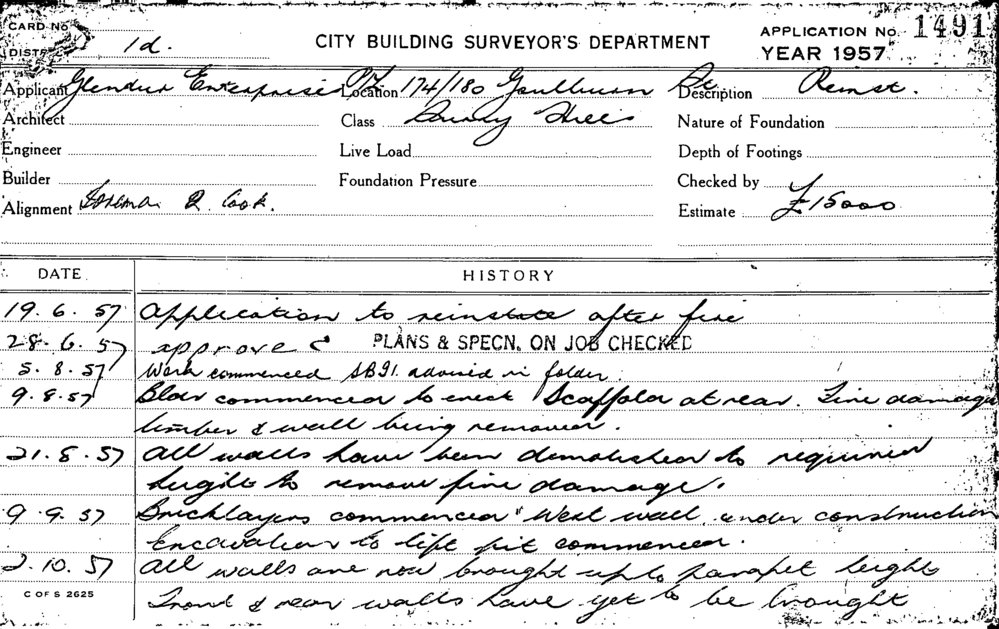 CARD No.
APPLICATION No. 1491
DISTR 1d.
CITY BUILDING SURVEYOR'S DEPARTMENT
YEAR 1957
Applicant Glendur Enterprises P/L Location 174/180 Goulburn St Description Reinst.
Architect Class Surry Hills Nature of Foundation
Engineer Live Load Depth of Footings
Builder Foundation Pressure Checked by
Alignment Foreman R. Cook. Estimate £15000
DATE HISTORY
19.6.57 Application to reinstate after fire
28.6.57 approved PLANS & SPECN. ON JOB CHECKED
5.8.57 Work commenced SB91 advised in folder
9.8.57 Bldr commenced to erect Scaffold at rear. Fire damage
timber & wall being removed.
21.8.57 All walls have been demolished to required
height to remove fire damage.
9.9.57 Bricklayers commenced West wall under construction
Excavation to lift pit commenced.
2.10.57 All walls are now brought up to parapet height
C OF S 2625
Front & rear walls have yet to be brought